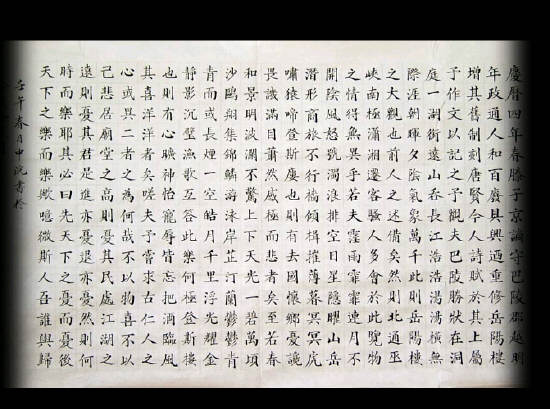 慶曆四年春滕子京謫守巴陵郡越明
年政通人和百廢具興迺重修岳陽樓
增其舊制刻唐賢今人詩賦於其上屬
予作文以記之予觀夫巴陵勝狀在洞
庭一湖銜遠山吞長江浩浩湯湯橫無
際涯朝暉夕陰氣象萬千此則岳陽樓
之大觀也前人之述備矣然則北通巫
峽南極瀟湘遷客騷人多會於此覽物
之情得無異乎若夫霪雨霏霏連月不
開陰風怒號濁浪排空日星隱曜山岳
潛形商旅不行檣傾楫摧薄暮冥冥虎
嘯猿啼登斯樓也則有去國懷鄉憂讒
畏譏滿目蕭然感極而悲者矣至若春
和景明波瀾不驚上下天光一碧萬頃
沙鷗翔集錦鱗游泳岸芷汀蘭鬱鬱青
青而或長煙一空皓月千里浮光耀金
靜影沉璧漁歌互答此樂何極登斯樓
也則有心曠神怡寵辱皆忘把酒臨風
其喜洋洋者矣嗟夫予嘗求古仁人之
心或異二者之為何哉不以物喜不以
己悲居廟堂之高則憂其民處江湖之
遠則憂其君是進亦憂退亦憂然則何
時而樂耶其必曰先天下之憂而憂後
天下之樂而樂歟噫微斯人吾誰與歸
壬午春月中沅書於